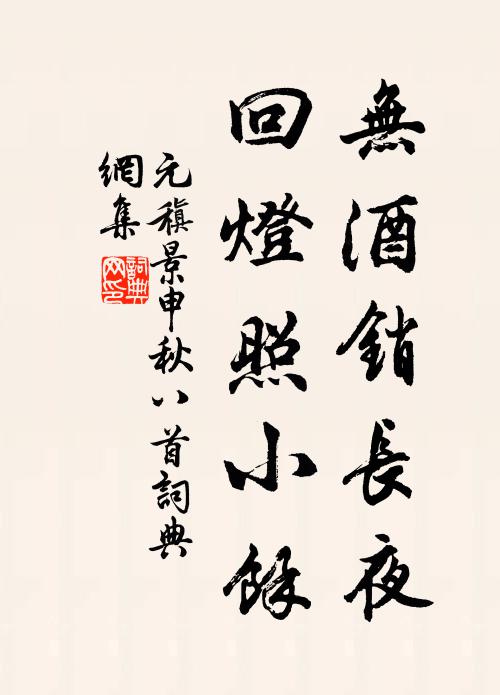 無酒銷長夜
回燈照小餘
元稹景申秋八首詞典
網集
詞典
网印